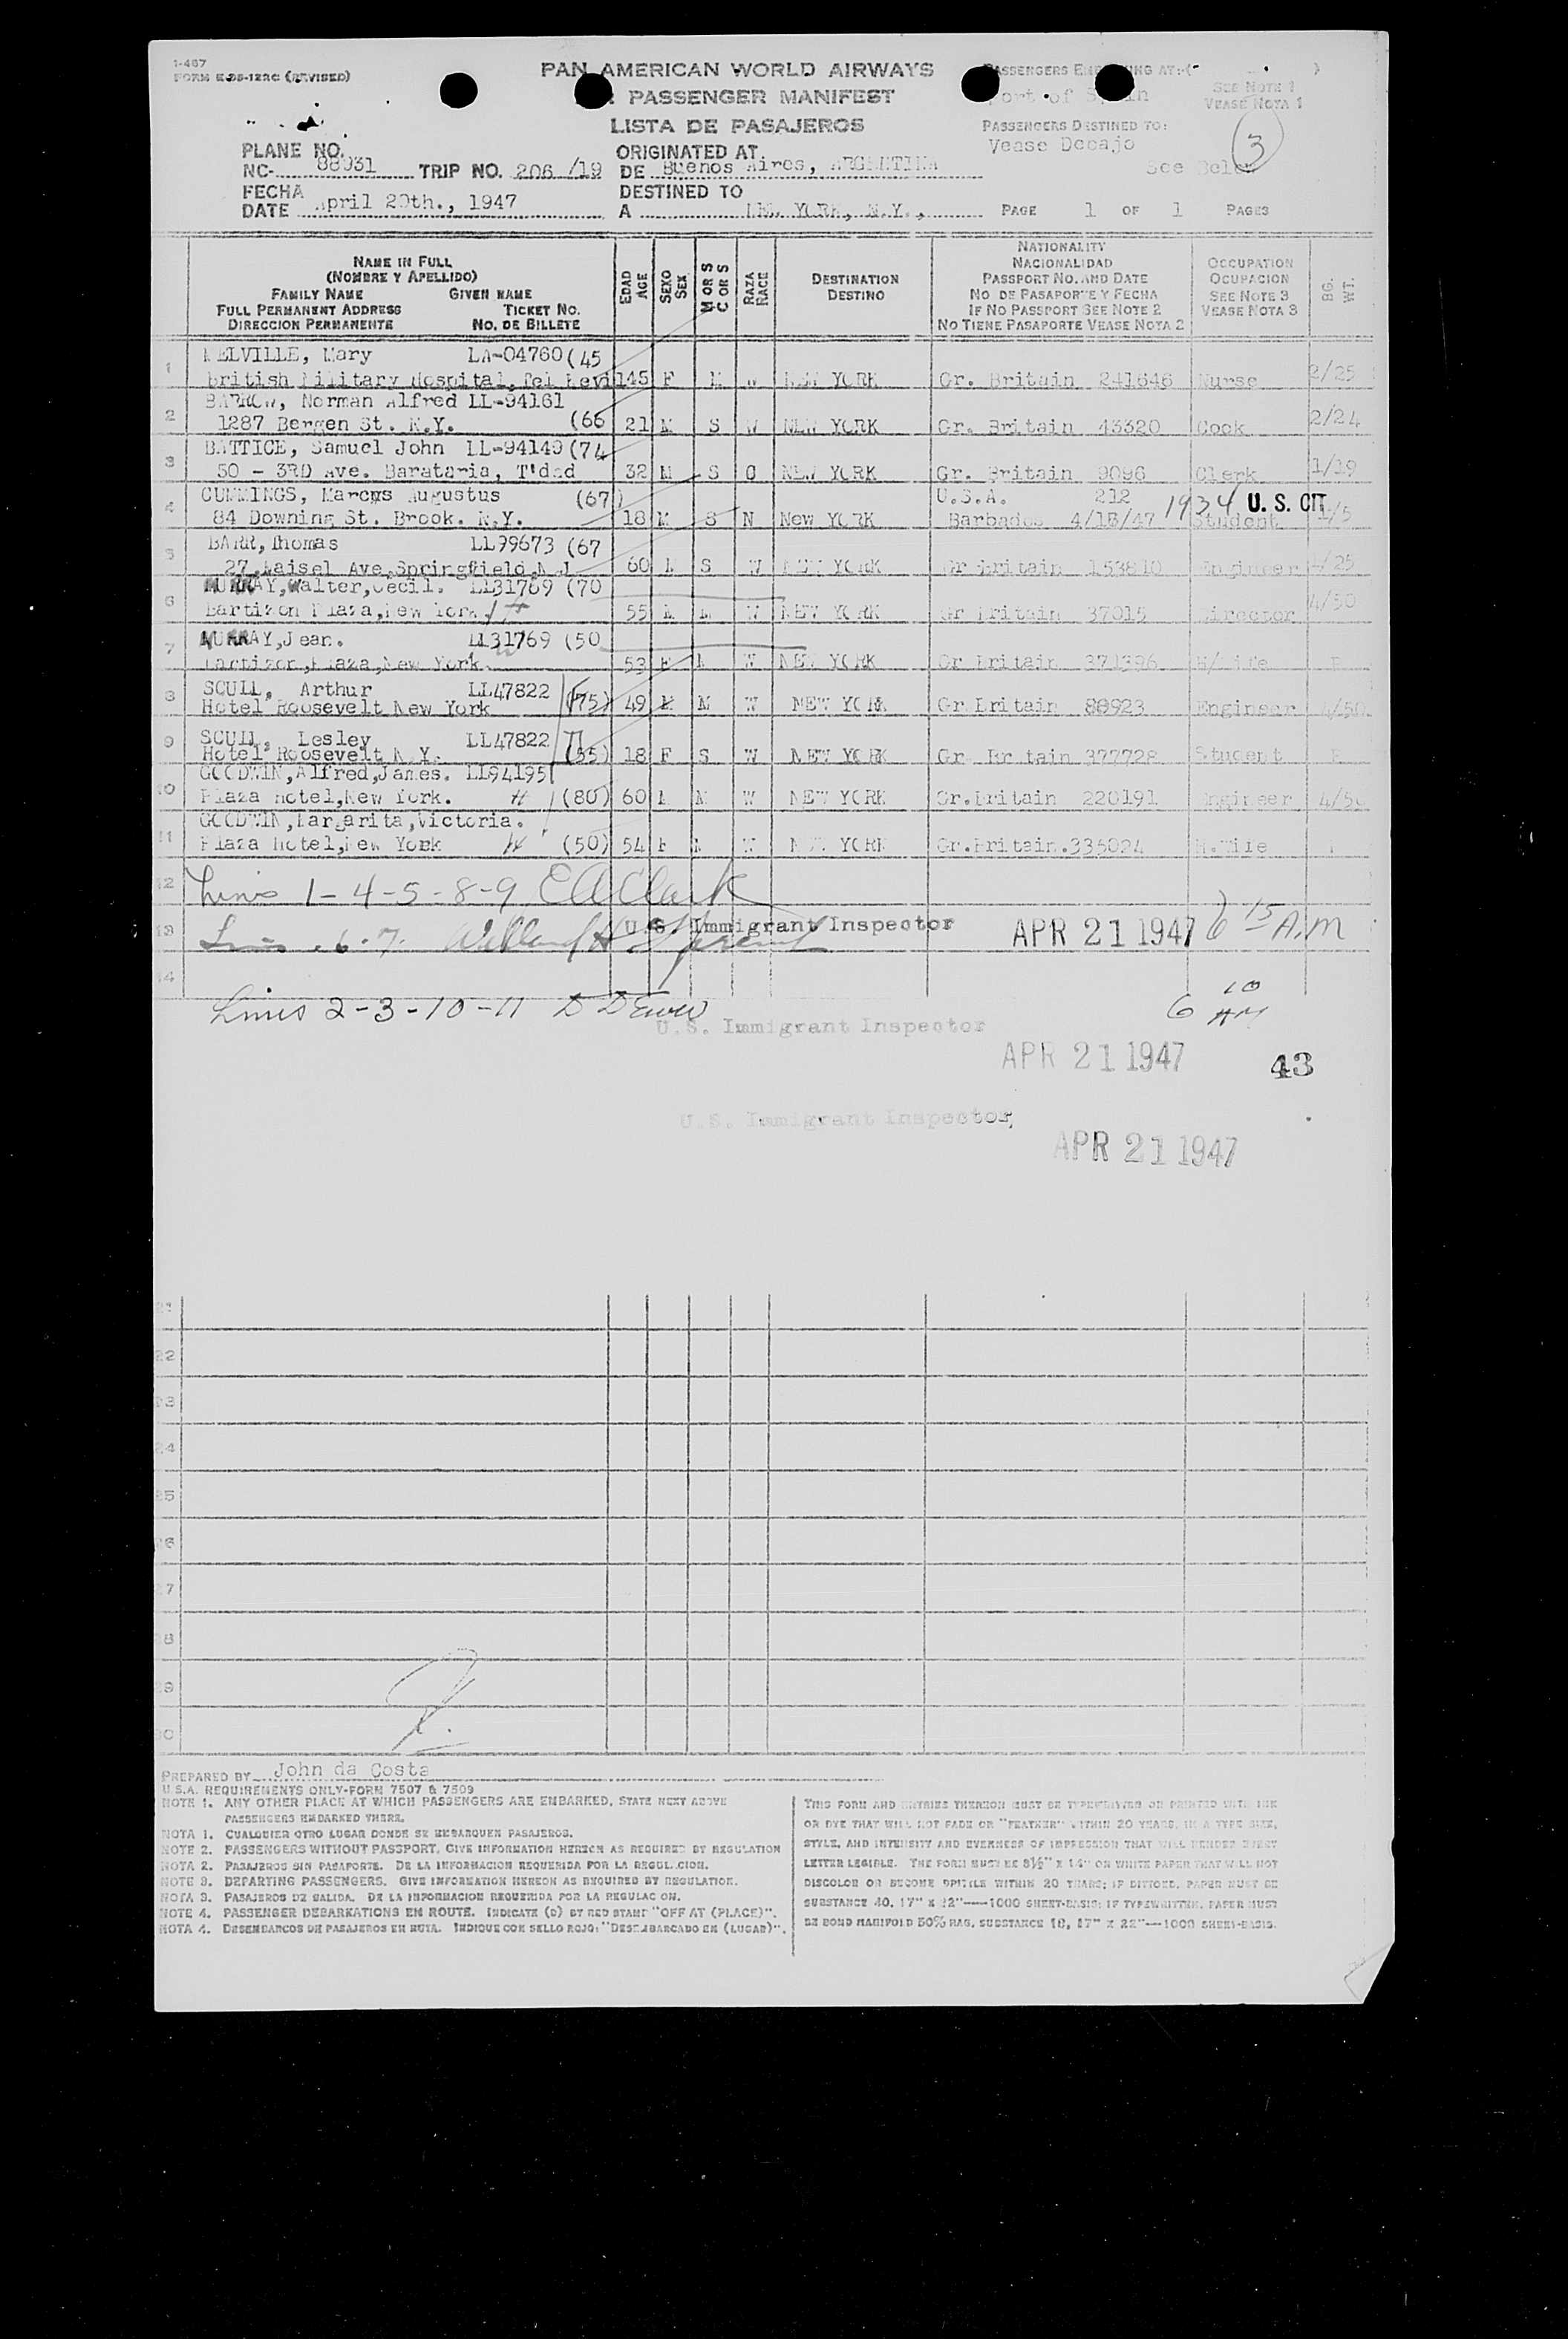 1-467
FORM (REVISED)
PAN AMERICAN WORLD AIRWAYS
PASSENGER MANIFEST
LISTA DE PASAJEROS
PASSENGERS AT:-( )
Port of Spain
SEE NOTE 1
VEASE NOTA 1
PASSENGERS DESTINED TO:
Vease Debajo
See Below
3
PLANE NO.
NC- 88931 TRIP NO. 206 /19
ORIGINATED AT
DE Buenos Aires, ARGENTINA
FECHA
DATE April 20th., 1947
DESTINED TO
A NEW YORK, N.Y.,
PAGE 1 OF 1 PAGES
NAME IN FULL
(NOMBRE Y APELLIDO)
FAMILY NAME GIVEN NAME
FULL PERMANENT ADDRESS TICKET NO.
DIRECCION PERMANENTE NO. DE BILLETE
EDAD AGE
SEXO SEX
M OR S C OR S
RAZA RACE
DESTINATION
DESTINO
NATIONALITY
NACIONALIDAD
PASSPORT NO. AND DATE
NO. DE PASAPORTE Y FECHA
IF NO PASSPORT SEE NOTE 2
NO TIENE PASAPORTE VEASE NOTA 2
OCCUPATION
OCUPACION
SEE NOTE 3
VEASE NOTA 3
BG. WT.
1 MELVILLE, Mary LA-04760 (45
British Military Hospital, 45 F M W NEW YORK Gr. Britain 241646 Nurse 2/25
2 BARROW, Norman Alfred LL-94161
1287 Bergen St. N.Y. (66 21 M S W NEW YORK Gr. Britain 43320 Cook 2/24
3 BATTICE, Samuel John LL-94149 (74
50 - 3RD Ave. Barataria, T'dad 32 M S O NEW YORK Gr. Britain 9096 Clerk 1/19
4 CUMMINGS, Marcus Augustus (67) U.S.A. 212 1934 U. S. CIT
84 Downing St. Brook. N.Y. 18 M S N New YORK Barbados 4/18/47 Student
5 BARR, Thomas LL99673 (67
27, Ave, Springfield, N.J 60 M S W NEW YORK Gr Britain 153810 Engineer 4/25
6 MURRAY, Walter, Cecil. LL31769 (70
Plaza, New York 55 M M W NEW YORK Gr Britain 37015 Director 4/50
7 MURRAY, Jean. LL31769 (50
Plaza, New York. 53 F M W NEW YORK Gr Britain 371396 H/Wife
8 SCULL, Arthur LL47822 (75)
Hotel Roosevelt New York 49 M M W NEW YORK Gr. Britain 88923 Engineer 4/50
9 SCULL, Lesley LL47822
Hotel Roosevelt N.Y. (55) 18 F S W NEW YORK Gr. Britain 377728 Student
10 GOODWIN, Alfred, James. LL94195
Plaza hotel, New York. (80) 60 M M W NEW YORK Gr. Britain 220191 Engineer 4/50
11 GOODWIN, Margarita, Victoria.
Plaza hotel, New York (50) 54 F M W NEW YORK Gr. Britain. 335024 H. Wife
12 Lines 1-4-5-8-9 E A Clark
13 Lines 6-7. U.S. Immigrant Inspector APR 21 1947 6 15 A.M
14
Lines 2-3-10-11 6 10 AM
U.S. Immigrant Inspector
APR 21 1947
43
U.S. Immigrant Inspector
APR 21 1947
21
22
23
24
25
26
27
28
29
30
PREPARED BY John da Costa
U.S.A. REQUIREMENTS ONLY-FORM 7507 & 7509
NOTE 1. ANY OTHER PLACE AT WHICH PASSENGERS ARE EMBARKED, STATE NEXT ABOVE
PASSENGERS EMBARKED THERE.
NOTA 1. CUALQUIER OTRO LUGAR DONDE SE EMBARQUEN PASAJEROS.
NOTE 2. PASSENGERS WITHOUT PASSPORT, GIVE INFORMATION HEREON AS REQUIRED BY REGULATION
NOTA 2. PASAJEROS SIN PASAPORTE. DE LA INFORMACION REQUERIDA POR LA REGULACION.
NOTE 3. DEPARTING PASSENGERS. GIVE INFORMATION HEREON AS REQUIRED BY REGULATION.
NOTA 3. PASAJEROS DE SALIDA. DE LA INFORMACION REQUERIDA POR LA REGULACION.
NOTE 4. PASSENGER DEBARKATIONS EN ROUTE. INDICATE (D) BY RED STAMP "OFF AT (PLACE)".
NOTA 4. DESEMBARCOS DE PASAJEROS EN RUTA. INDIQUE CON SELLO ROJO: "DESEMBARCADO EN (LUGAR)".
THIS FORM AND ENTRIES THEREON MUST BE TYPEWRITTEN OR PRINTED WITH INK
OR DYE THAT WILL NOT FADE OR "FEATHER" WITHIN 20 YEARS, IN A TYPE SIZE,
STYLE, AND INTENSITY AND EVENNESS OF IMPRESSION THAT WILL RENDER EVERY
LETTER LEGIBLE. THE FORM MUST BE 8½" X 14" ON WHITE PAPER THAT WILL NOT
DISCOLOR OR BECOME BRITTLE WITHIN 20 YEARS; IF DITTOED, PAPER MUST BE
SUBSTANCE 40, 17" X 22"—1000 SHEET-BASIS; IF TYPEWRITTEN, PAPER MUST
BE BOND MANIFOLD 50% RAG, SUBSTANCE 18, 17" X 22"—1000 SHEET-BASIS.